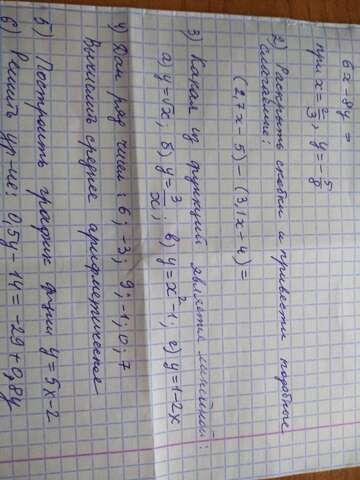 6x - 8y =
при x = 2/3, y = 5/8
2) Раскрыть скобки и привести подобные
слагаемые:
(2,7x - 5) - (3,1x - 4) =
3) Какая из функций является линейной:
а) y = √x, б) y = 3/x; в) y = x² - 1; г) y = 1 - 2x
4) Дан ряд чисел: 6; -3; 9; -1; 0; 7
Вычислить среднее арифметическое
5) Построить график ф-ции y = 5x - 2
6) Решить ур-ие: 0,5y - 14 = -29 + 0,8y